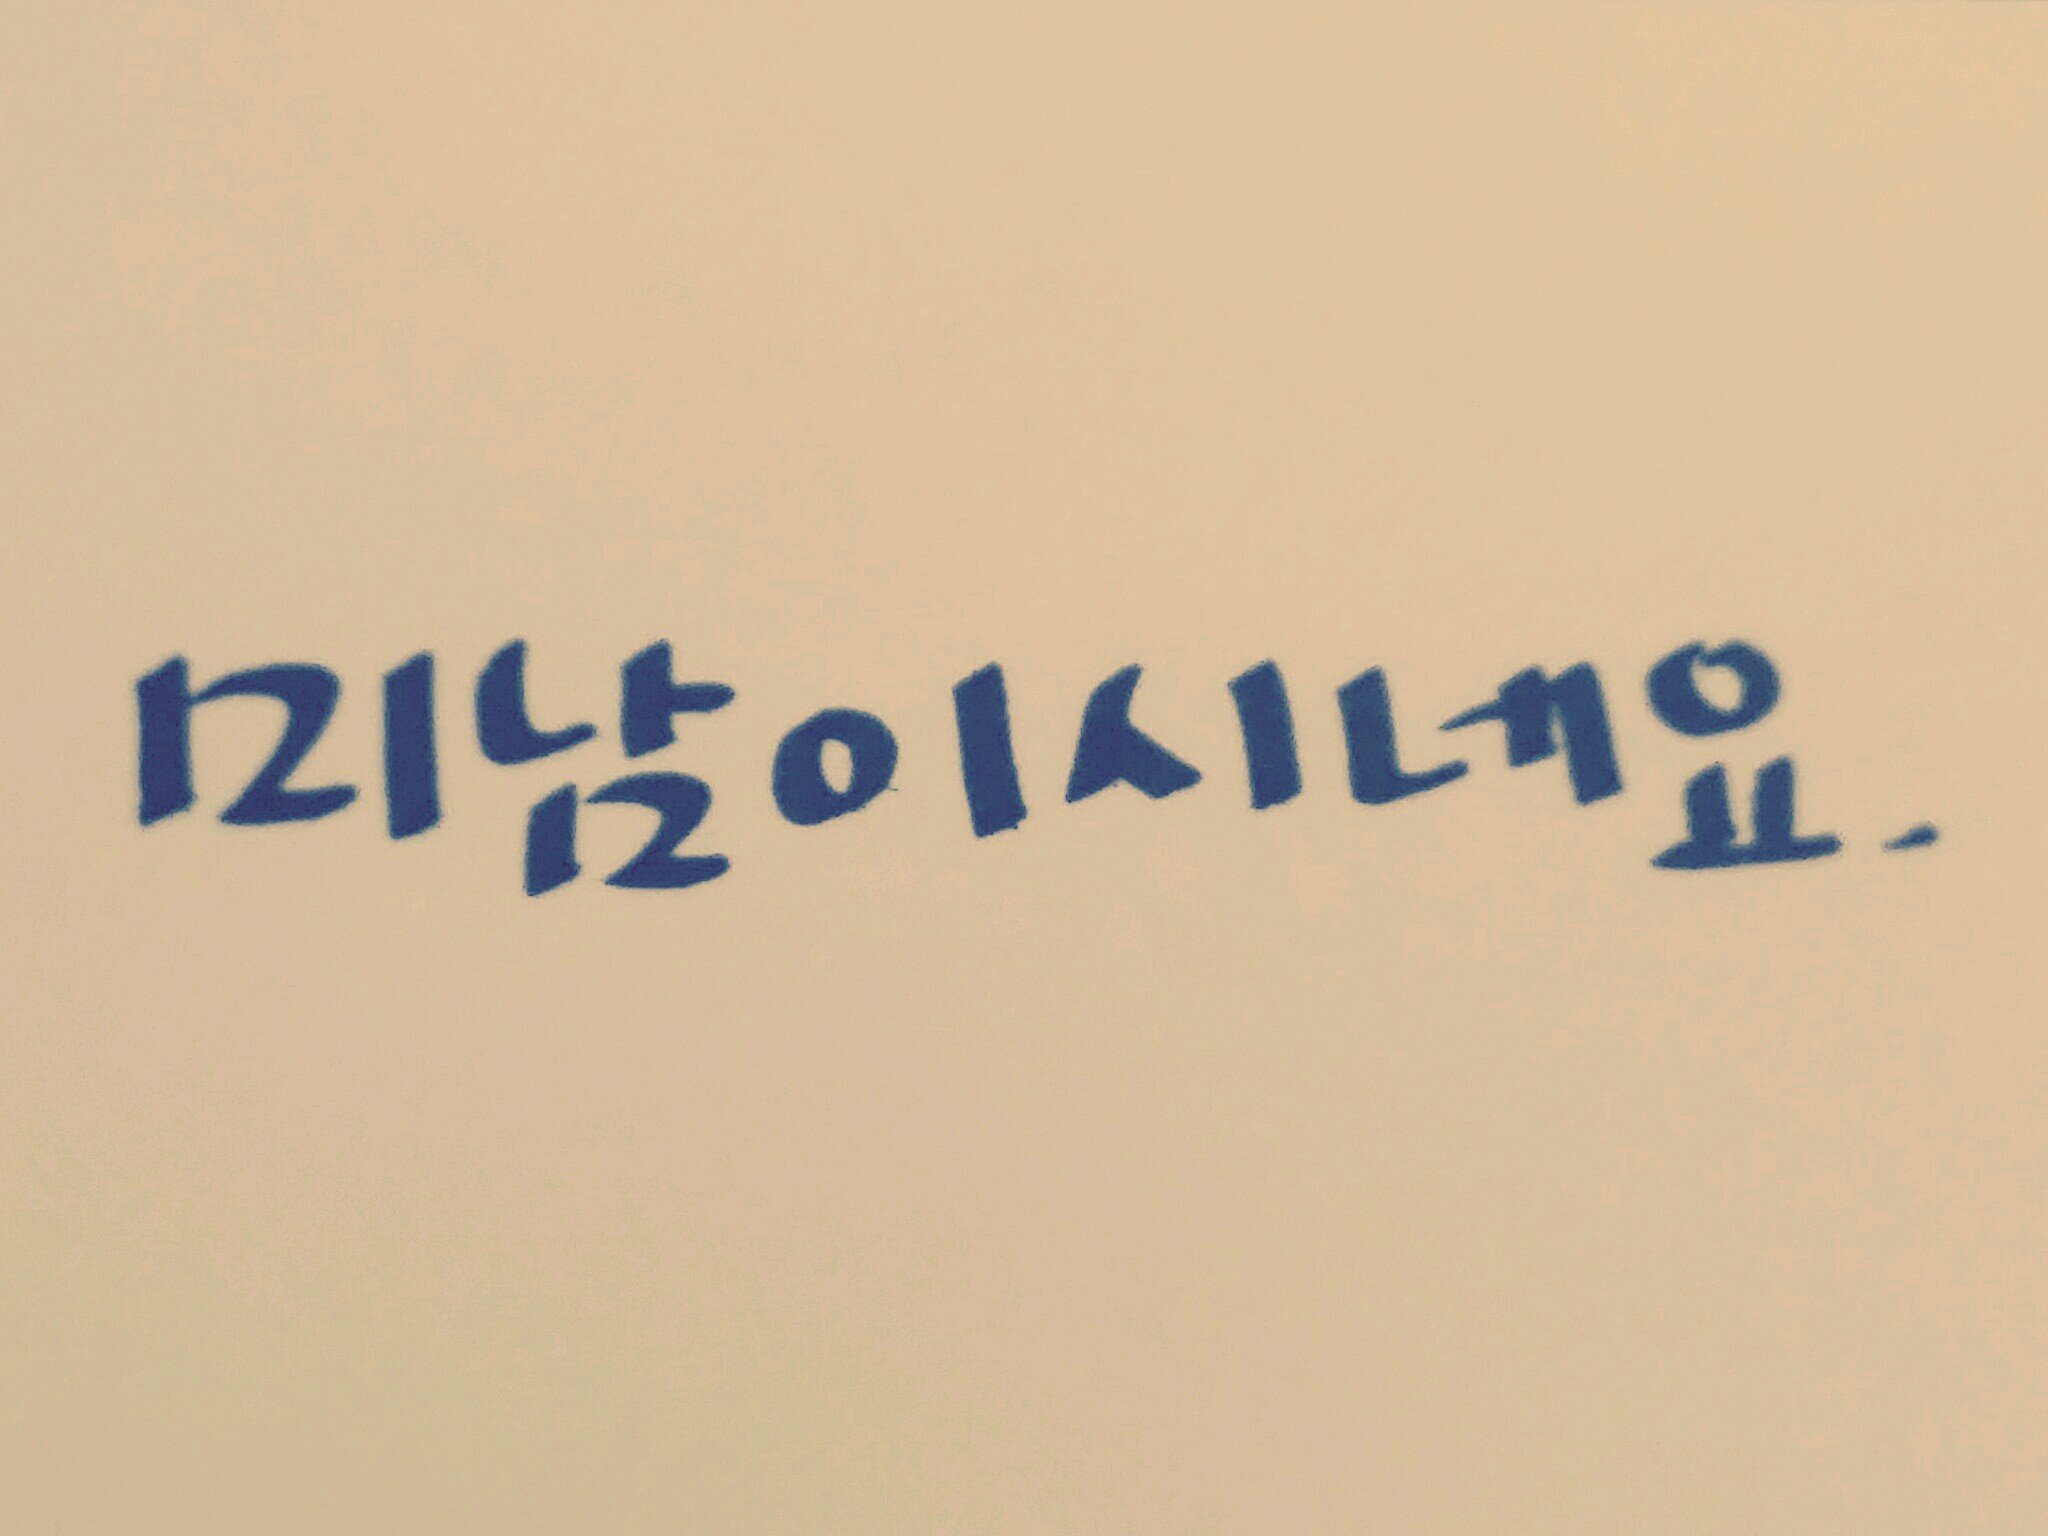 미남이시네요.